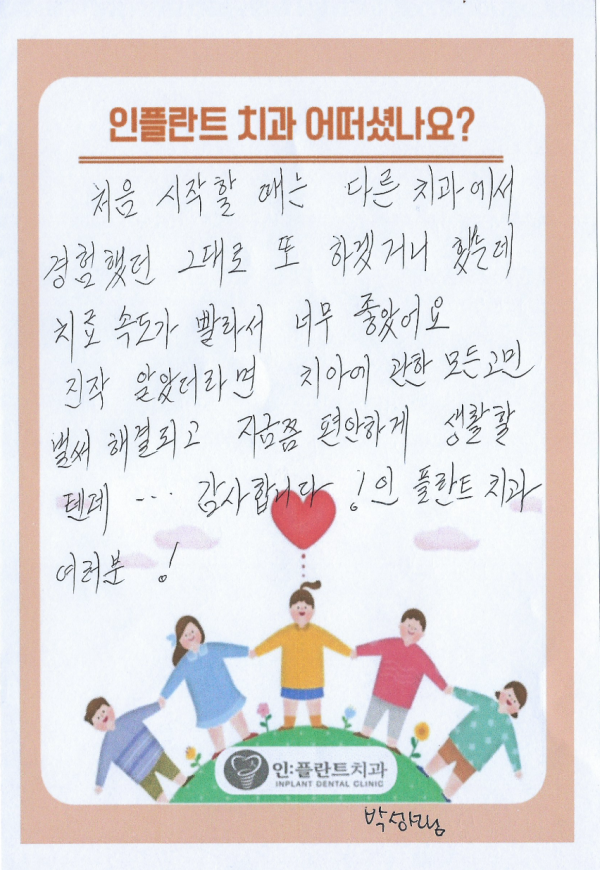 인플란트 치과 어떠셨나요?
처음 시작할 때는 다른 치과에서
경험했던 그대로 또 하겠거니 했는데
치료 속도가 빨라서 너무 좋았어요
진작 알았더라면 치아에 관한 모든고민
벌써 해결되고 지금쯤 편안하게 생활할
텐데 ... 감사합니다 ! 인 플란트 치과
여러분 !
인:플란트치과
INPLANT DENTAL CLINIC